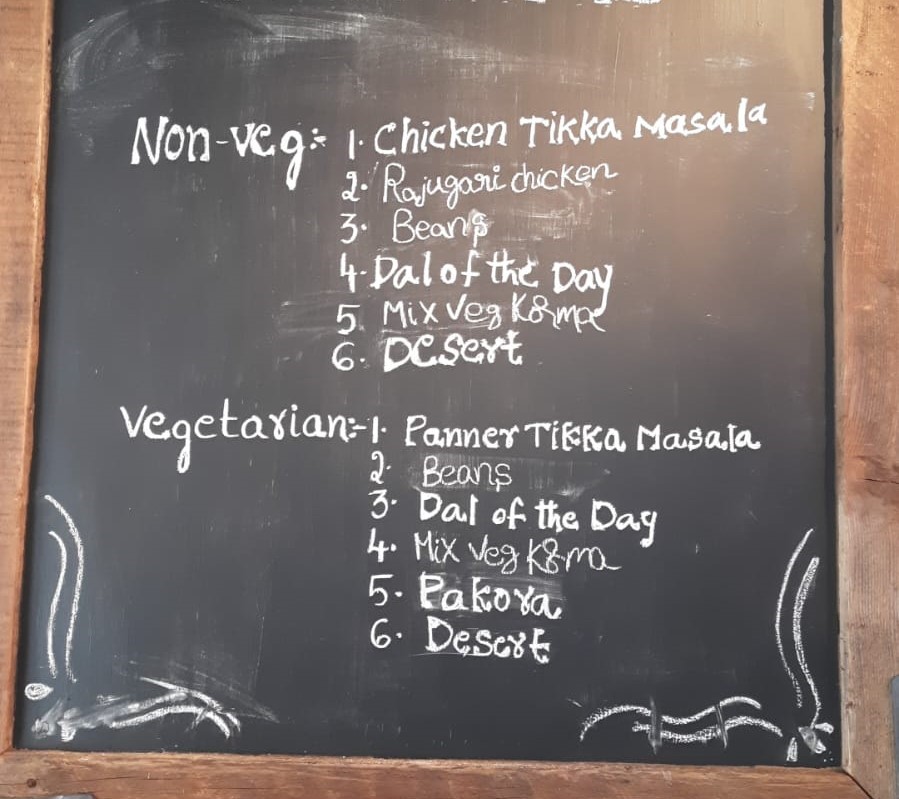 Non-veg:- 1. Chicken Tikka Masala
2. Rajugari chicken
3. Beans
4. Dal of the Day
5 Mix Veg Korma
6. Desert
Vegetarian:- 1. Panner Tikka Masala
2. Beans
3. Dal of the Day
4. Mix Veg Korma
5. Pakora
6. Desert